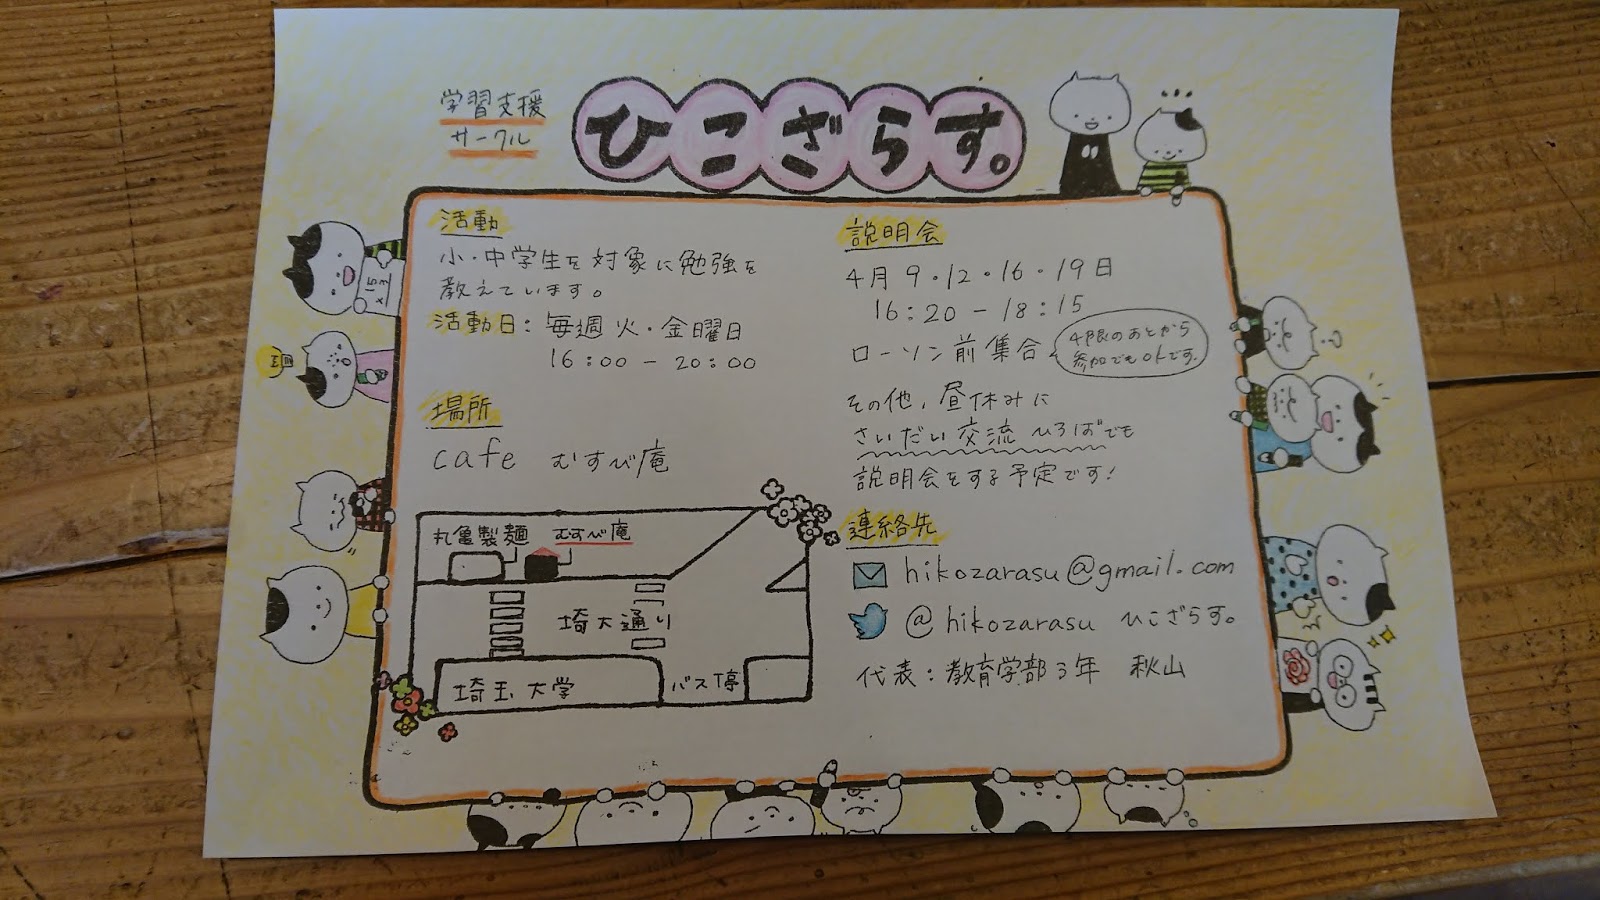 学習支援
サークル
ひこざらす。
活動
小・中学生を対象に勉強を
教えています。
活動日：毎週火・金曜日
16：00－20：00
場所
cafe むすび庵
丸亀製麺 むすび庵
埼大通り
埼玉大学
バス停
説明会
4月9・12・16・19日
16：20－18：15
ローソン前集合
4限のあとから
参加でもOKです。
その他、昼休みに
さいだい交流ひろばでも
説明会をする予定です！
連絡先
hikozarasu@gmail.com
@hikozarasu ひこざらす。
代表：教育学部3年 秋山
15
×3